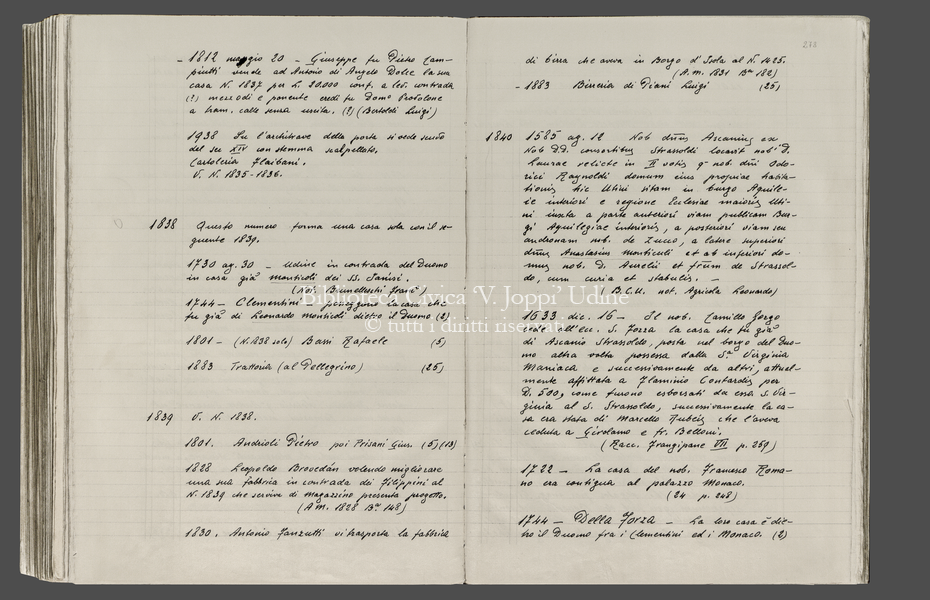 - 1812 maggio 20 - Giuseppe fu Pietro Cam-
piutti vende ad Antonio di Angelo Dolce la sua
casa N. 1837 per L. 20.000 conf. a lev. contrada
(?) mezzodì e ponente eredi fu Domo
a tram. calle senza uscita. (?) (Bertoldi Luigi)
1938 Su l'architrave della porta si vede scudo
del sec XIV con stemma scalpellato.
Cartoleria Flaibani.
V. N. 1835-1836.
1838 Questo numero forma una casa sola con il se-
guente 1839.
1730 ag. 30 - Udine in contrada del Duomo
in casa già monticoli dei SS. Fanisi.
(Not. Brunelleschi Franc)
1744 - Clementini - posseggono la casa che
fu già di Leonardo Monticoli dietro il Duomo (2)
1801 - (N. 1838 solo) Bassi Rafaele (5)
1883 Trattoria (al Pellegrino) (25)
1839 V. N. 1838.
1801. Andrioli Pietro poi Prisani Gius. (5) (13)
1828 Leopoldo Brovedan volendo migliorare
una sua fabbrica in contrada dei Filippini al
N. 1839 che serviva di magazzino presenta progetto.
(A.M. 1828 Ba 148)
1830. Antonio Janzutti vi trasporta la fabbrica
273
di birra che aveva in Borgo d'Isola al N. 1425.
(A.M. 1831 Ba 182)
- 1883 Birreria di Diani Luigi (25)
1840 1585 ag. 12 Nob dnus Ascanius ex
Nob D.D. consortibus Strassoldi locavit nob' D.
Laurae relicte in II votis q nob. dni Odo-
rici Raynoldi domum eius propriae habita-
tionis hic Utini sitam in burgo Aquile-
ie interiori e regione Ecclesiae maioris Uti-
ni iuxta a parte anteriori viam publicam Bur-
gi Aquilegiae interioris, a posteriori viam seu
andronam nob. de Zucco, a latere superiori
dnus Anastasius monticuli et ab inferiori do-
mus nob. D. Aurelii et frum de Strassol-
do, cum curia et stabulis. -
(B.C.U. not. Agricola Leonardo)
1633 dic. 16 - Il nob. Camillo Gorgo
cede all'ecc. S. Forza la casa che fu già
di Ascanio Strassoldo, posta nel borgo del Duo-
mo altra volta possessa dalla Sa Virginia
Maniaca e successivamente da altri, attual-
mente affittata a Flaminio Contardis per
D. 500, come furono esborsati da essa S. Vir-
ginia al S. Strassoldo, successivamente la ca-
sa era stata di Marcello Rubeis che l'aveva
ceduta a Girolamo e fr. Belloni.
(Racc. Frangipane VII p. 259)
1722 - La casa del nob. Francesco Roma-
no era contigua al palazzo Monaco.
(24 p. 248)
1744 - Della Forza - La loro casa è die-
tro il Duomo fra i Clementini ed i Monaco. (2)
Biblioteca Civica 'V. Joppi' Udine
© tutti i diritti riservati